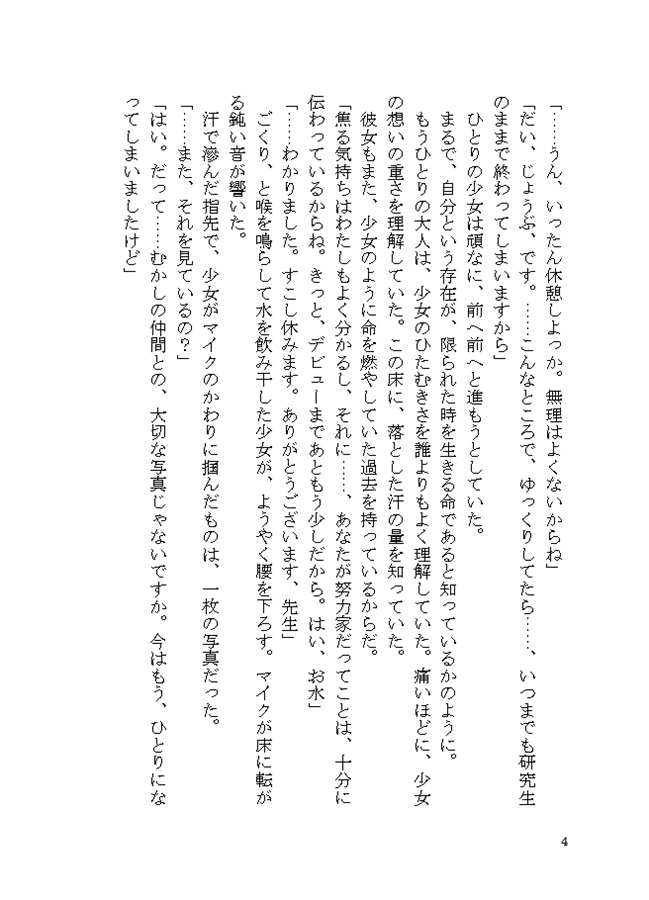 「……うん、いったん休憩しよっか。無理はよくないからね」
「だい、じょうぶ、です。……こんなところで、ゆっくりしてたら……、いつまでも研究生
のままで終わってしまいますから」
ひとりの少女は頑なに、前へ前へと進もうとしていた。
まるで、自分という存在が、限られた時を生きる命であると知っているかのように。
もうひとりの大人は、少女のひたむきさを誰よりもよく理解していた。痛いほどに、少女
の想いの重さを理解していた。この床に、落とした汗の量を知っていた。
彼女もまた、少女のように命を燃やしていた過去を持っているからだ。
「焦る気持ちはわたしもよく分かるし、それに……、あなたが努力家だってことは、十分に
伝わっているからね。きっと、デビューまであともう少しだから。はい、お水」
「……わかりました。すこし休みます。ありがとうございます、先生」
ごくり、と喉を鳴らして水を飲み干した少女が、ようやく腰を下ろす。マイクが床に転が
る鈍い音が響いた。
汗で滲んだ指先で、少女がマイクのかわりに掴んだものは、一枚の写真だった。
「……また、それを見ているの?」
「はい。だって……むかしの仲間との、大切な写真じゃないですか。今はもう、ひとりにな
ってしまいましたけど」
4